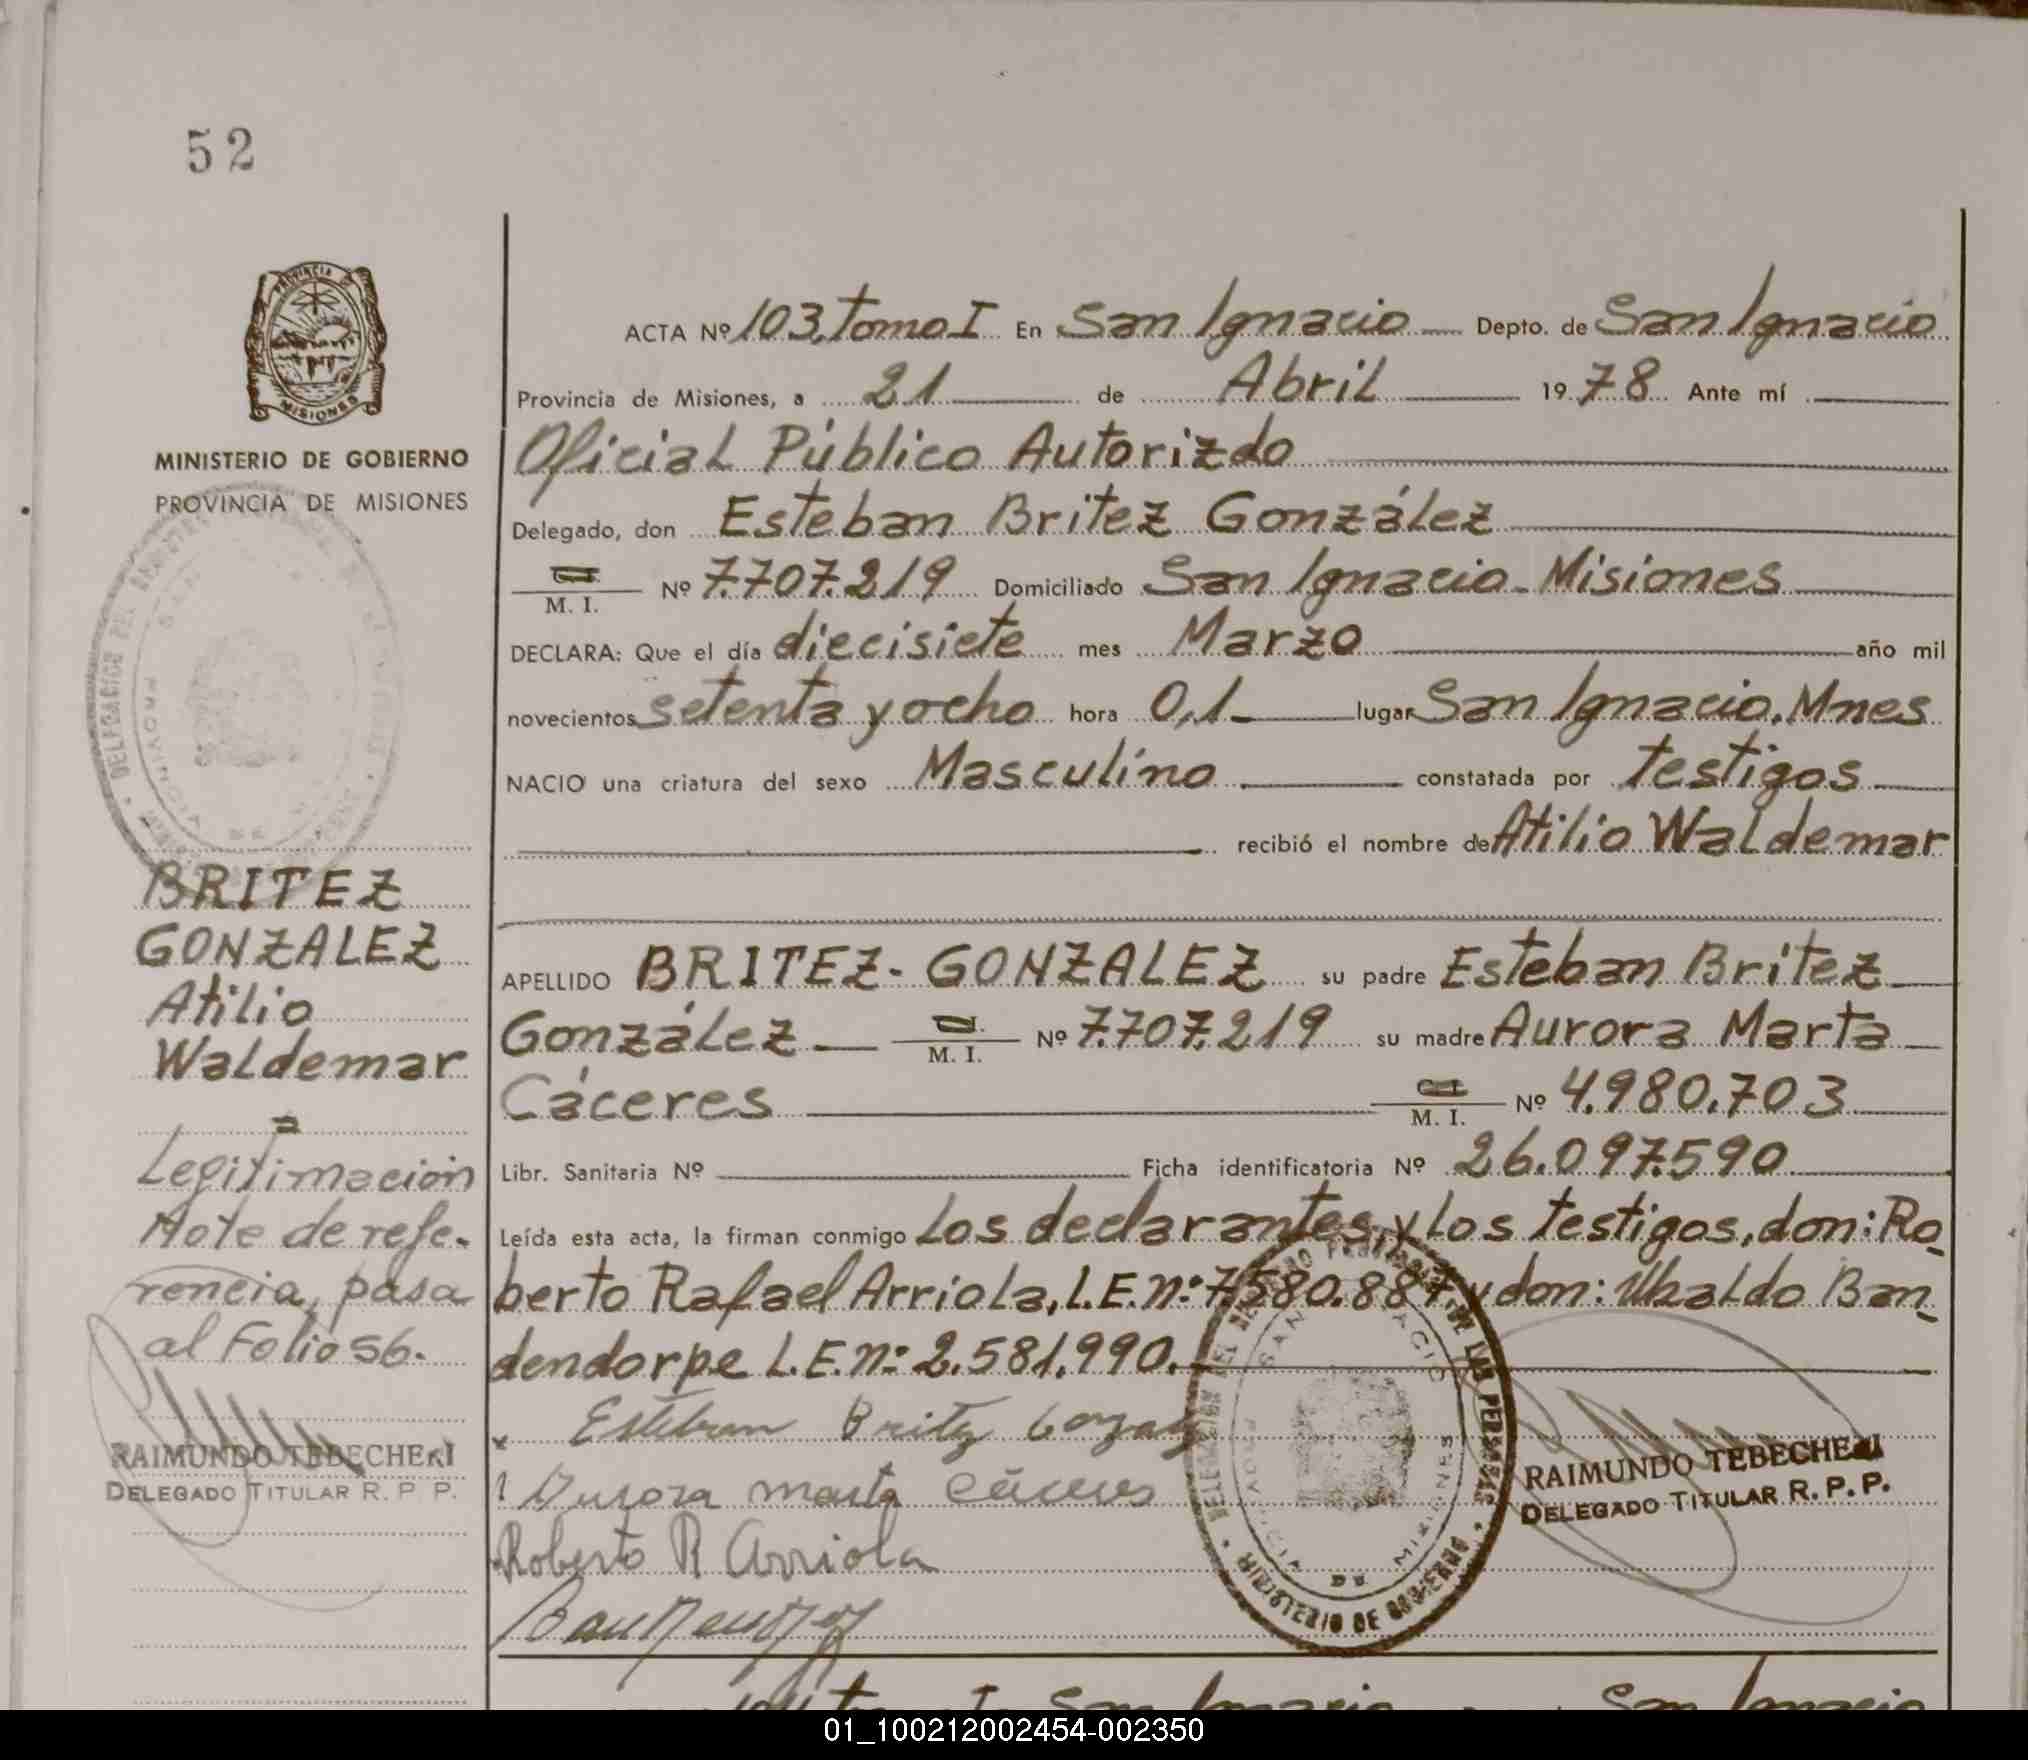 52
PROVINCIA
MISIONES
MINISTERIO DE GOBIERNO
PROVINCIA DE MISIONES
ACTA Nº 103, Tomo I En San Ignacio Depto. de San Ignacio
Provincia de Misiones, a 21 de Abril 1978 Ante mí
Oficial Público Autorizdo
Delegado, don Esteban Britez González
M. I. Nº 7.707.219 Domiciliado San Ignacio - Misiones
DECLARA: Que el día diecisiete mes Marzo año mil
novecientos setenta y ocho hora 0,1- lugar San Ignacio, Mnes
NACIO una criatura del sexo Masculino constatada por testigos
recibió el nombre de Atilio Waldemar
APELLIDO BRITEZ - GONZALEZ su padre Esteban Britez
González M. I. Nº 7.707.219 su madre Aurora Marta
Cáceres M. I. Nº 4.980.703
Libr. Sanitaria Nº Ficha identificatoria Nº 26.097.590
Leída esta acta, la firman conmigo los declarantes, y los testigos, don: Ro-
berto Rafael Arriola, L.E. nº: 7.580.887. y don: Ubaldo Ban-
dendorpe L.E. nº: 2.581.990.
Esteban Britez Gonzalez
Aurora marta Cáceres
Roberto R Arriola
RAIMUNDO TEBECHERI
DELEGADO TITULAR R. P. P.
SAN IGNACIO
PROVINCIA DE MISIONES
MINISTERIO DE GOBIERNO
BRITEZ
GONZALEZ
Atilio
Waldemar
=
Legitimación
Note de refe-
rencia, pasa
al Folio 56.
RAIMUNDO TEBECHERI
DELEGADO TITULAR R. P. P.
01_100212002454-002350